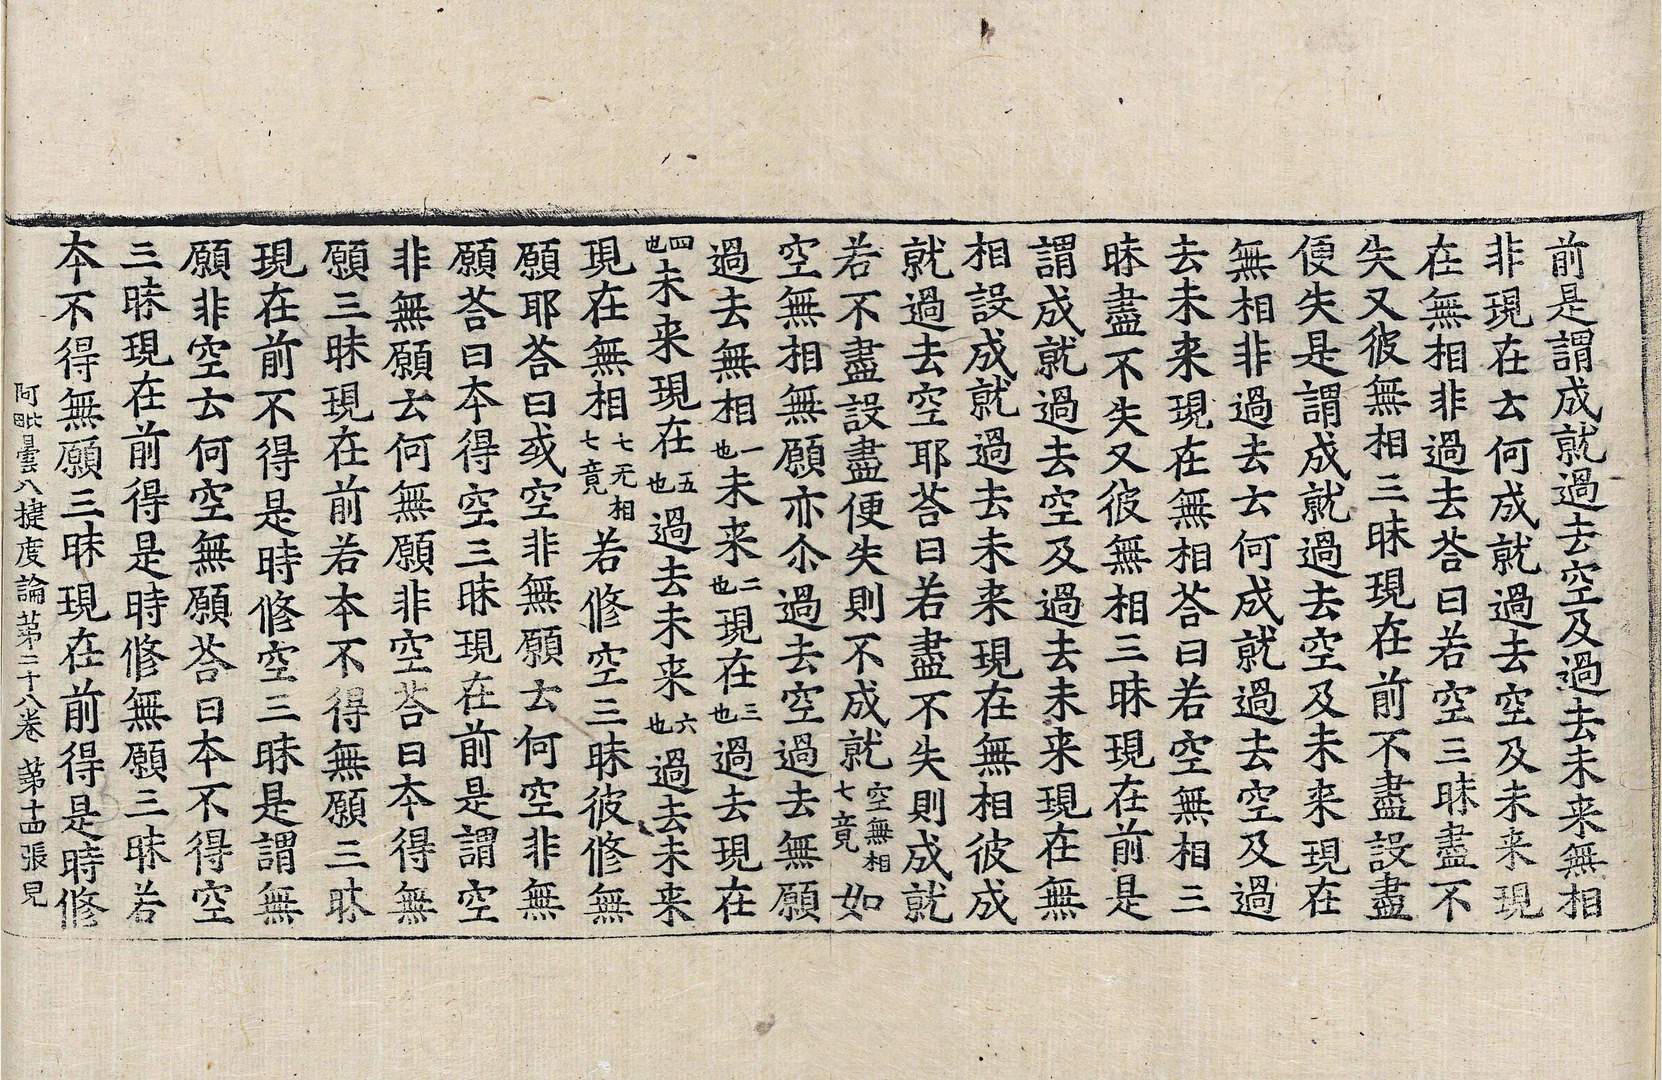 前是謂成就過去空及過去未来無相
非現在云何成就過去空及未来現
在無相非過去荅曰若空三昧盡不
失又彼無相三昧現在前不盡設盡
便失是謂成就過去空及未来現在
無相非過去云何成就過去空及過
去未来現在無相荅曰若空無相三
昧盡不失又彼無相三昧現在前是
謂成就過去空及過去未来現在無
相設成就過去未来現在無相彼成
就過去空耶荅曰若盡不失則成就
若不盡設盡便失則不成就空無相七竟如
空無相無願亦尒過去空過去無願
過去無相一也未来二也現在三也過去現在
四也未来現在五也過去未来六也過去未来
現在無相七无相七竟若修空三昧彼修無
願耶荅曰或空非無願云何空非無
願荅曰本得空三昧現在前是謂空
非無願云何無願非空荅曰本得無
願三昧現在前若本不得無願三昧
現在前不得是時修空三昧是謂無
願非空云何空無願荅曰本不得空
三昧現在前得是時修無願三昧若
本不得無願三昧現在前得是時修
阿毗曇八揵度論苐二十八卷 苐十四張 皃